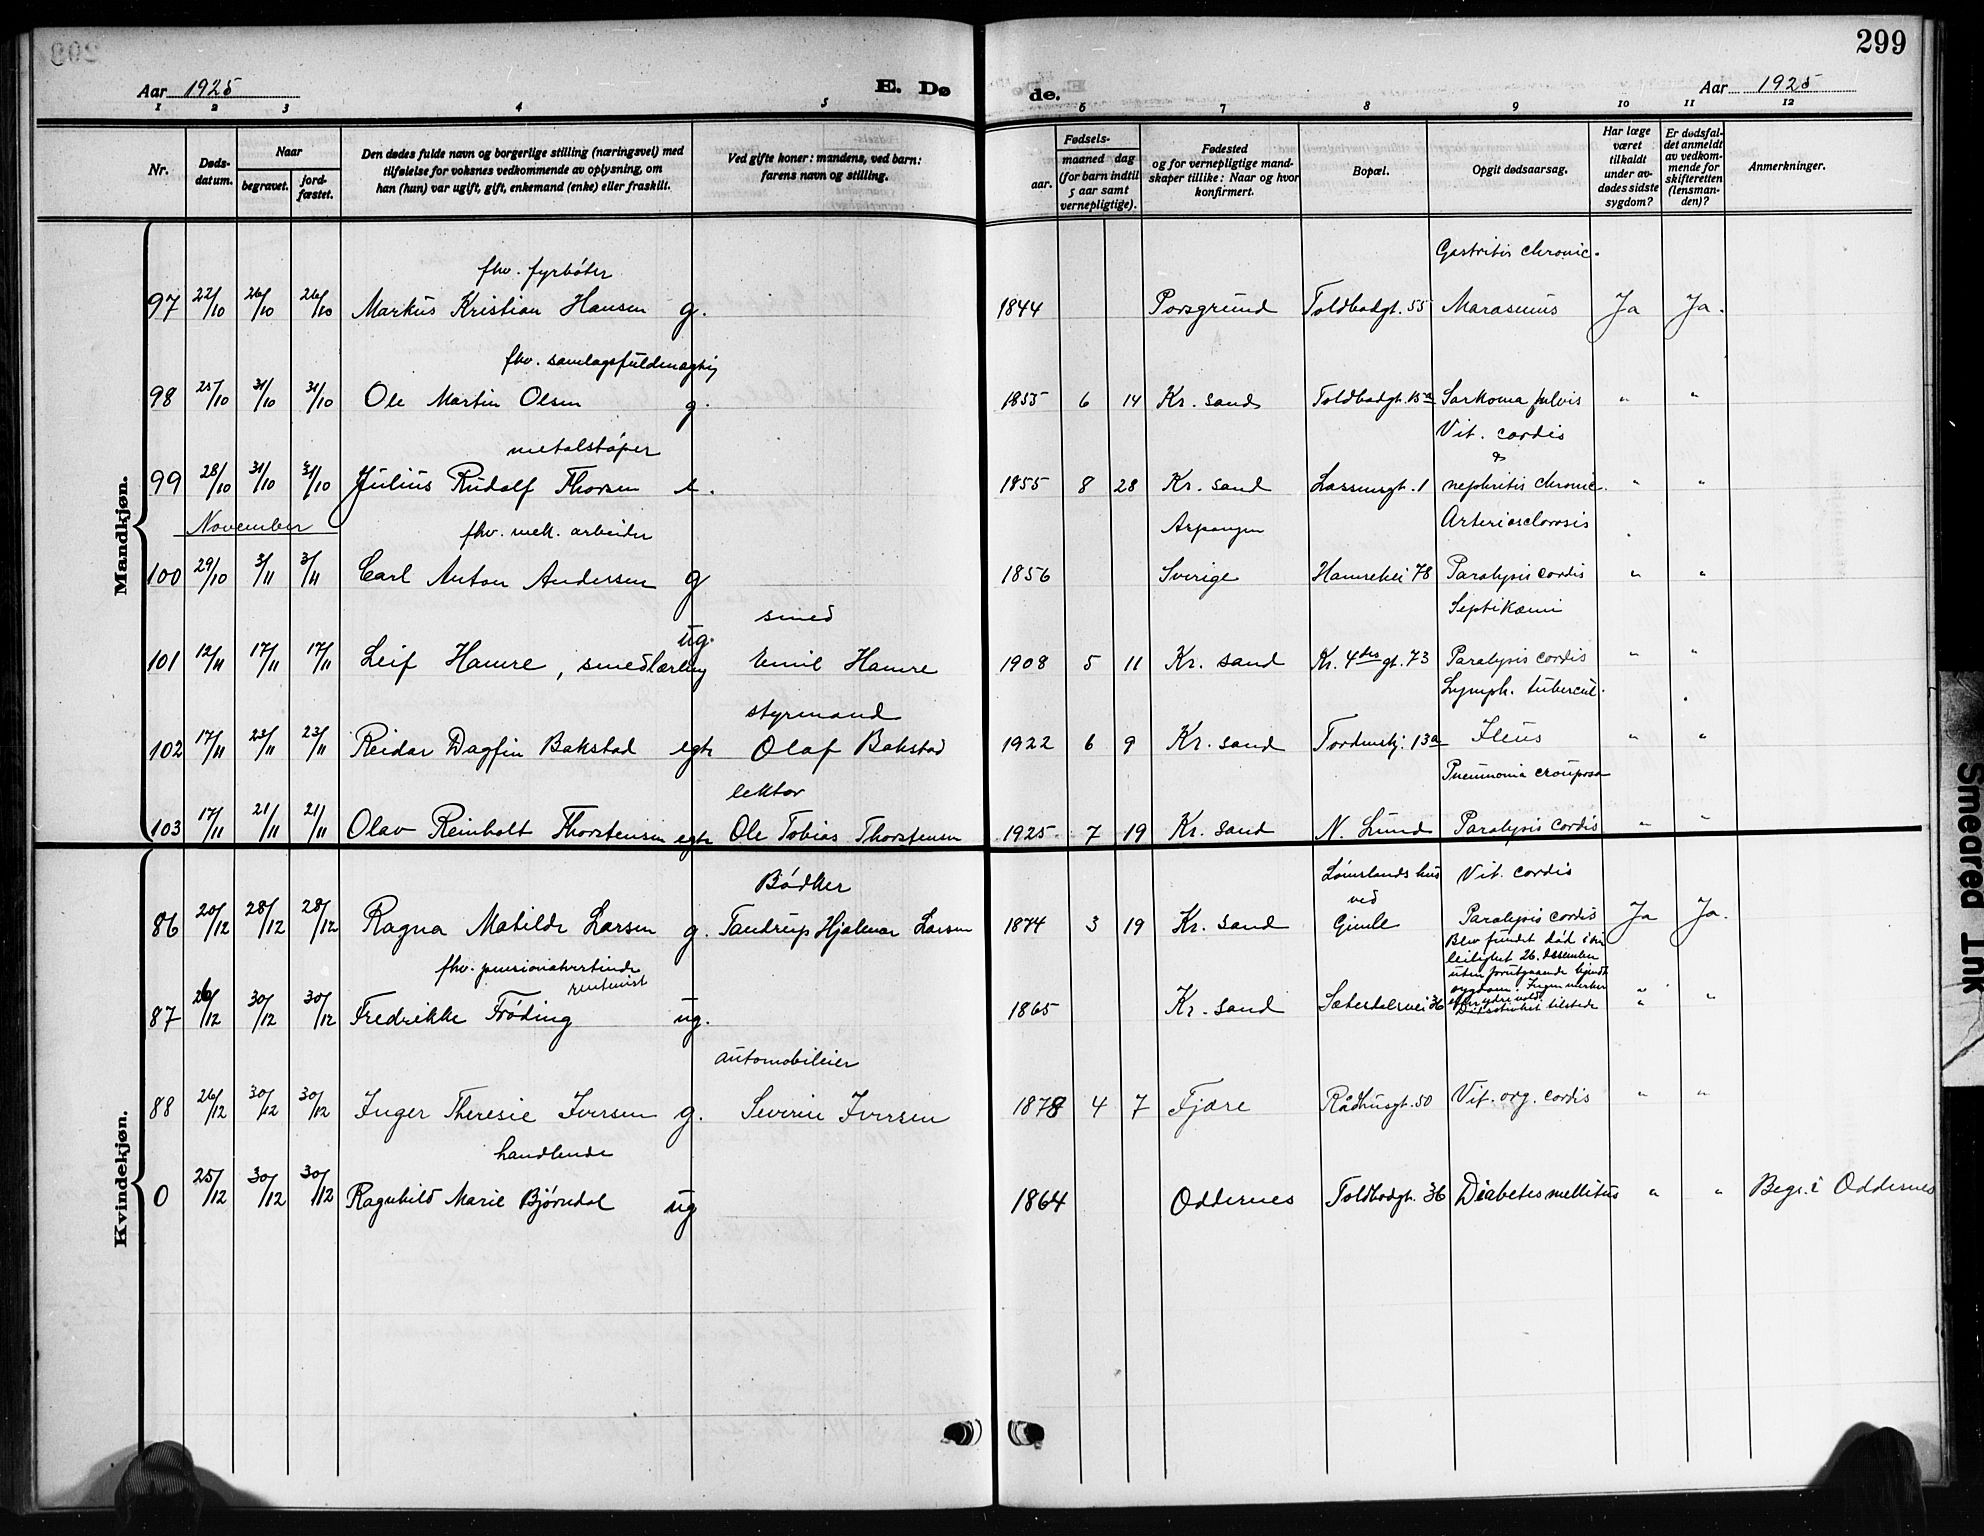 299
Aar 1925 E. Dø de. Aar 1925
1 2 3 4 5 6 7 8 9 10 11 12
Nr.
Døds-
datum.
Naar
begravet.
jord-
fæstet.
Den dødes fulde navn og borgerlige stilling (næringsvei) med
tilføielse for voksnes vedkommende av oplysning, om
han (hun) var ugift, gift, enkemand (enke) eller fraskilt.
Ved gifte koner: mandens, ved barn:
farens navn og stilling.
Fødsels-
aar.
maaned dag
(for barn indtil
5 aar samt
vernepligtige).
Fødested
og for vernepligtige mand-
skaper tillike: Naar og hvor
konfirmert.
Bopæl.
Opgit dødsaarsag.
Har læge
været
tilkaldt
under av-
dødes sidste
sygdom?
Er dødsfal-
det anmeldt
av vedkom-
mende for
skifteretten
(lensman-
den)?
Anmerkninger.
Mandkjøn.
fhv. fyrbøter Gastritis chronic.
97 22/10 26/10 26/10 Markus Kristian Hansen g. 1844 Porsgrund Toldbodgt. 55 Marasmus Ja Ja.
fhv. samlagsfuldmægtig
98 25/10 31/10 31/10 Ole Martin Olsen g. 1855 6 14 Kr. sand Toldbodgt. 15a Sarkoma pelvis " "
metalstøper Vit. cordis
&
99 28/10 31/10 31/10 Julius Rudolf Thorsen e. 1855 8 28 Kr. sand 1 nephritis chronic. " "
November fhv. mek. arbeider Arteriosclerosis
100 29/10 3/11 3/11 Carl Anton Andersen g 1856 Sverige 78 Paralysis cordis " "
smed Septikæmi
101 12/11 17/11 17/11 Leif Hamre, smedlærling ug. Emil Hamre 1908 5 11 Kr. sand Kr. 4des gt. 73 Paralysis cordis " "
styrmand Lymph. tubercul.
102 17/11 23/11 23/11 Reidar Dagfin Bakstad egte Olaf Bakstad 1922 6 9 Kr. sand Tordenskj. 13a Ileus " "
lektor Pneumonia crouposa
103 17/11 21/11 21/11 Olav Reinholt Thorstensen egte Ole Tobias Thorstensen 1925 7 19 Kr. sand N. Lund Paralysis cordis " "
Kvindekjøn.
Bødker Lømslands hus Vit. cordis
ved
86 20/12 28/12 28/12 Ragna Matilde Larsen g. Tandrup Hjalmar Larsen 1874 3 19 Kr. sand Gimle Paralysis cordis Ja Ja.
fhv. pensionatvertinde Blev fundet død i sin
rentenist leilighet 26. desember
uten forutgaaende kjendt
sygdom. Ingen merker
efter ydre vold. "
87 26/12 30/12 30/12 Fredrikke Frøding ug. 1865 Kr. sand Sæterdalsvei 36 Dødsstivhet tilstede " "
automobileier
88 26/12 30/12 30/12 Inger Theresie Iversen g. Severin Iversen 1878 4 7 Fjære Rådhusgt. 50 Vit. org. cordis " "
handlende
0 25/12 30/12 30/12 Ragnhild Marie Bjørndal ug 1864 Oddernes Toldbodgt. 36 Diabetes mellitus " " Begr. i Oddernes
Smeared Ink